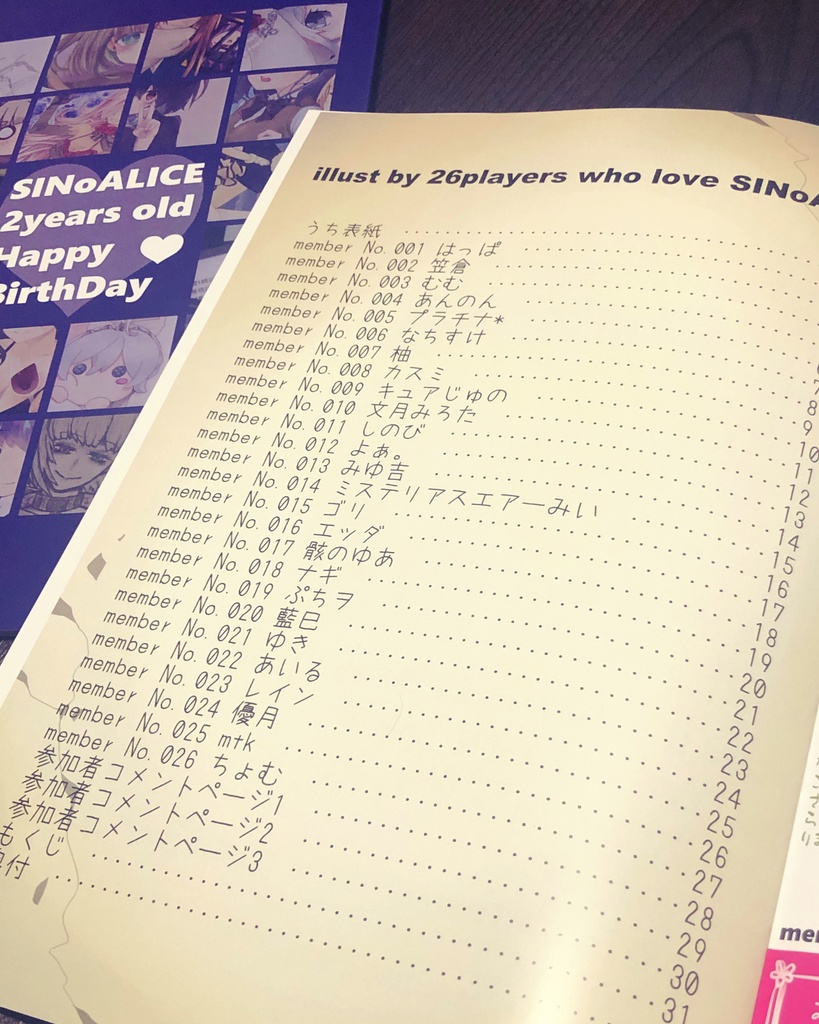 SINoALICE
2years old
Happy
BirthDay
illust by 26players who love SINoA
うち表紙
member No. 001 はっぱ
member No. 002 笠倉
member No. 003 むむ
member No. 004 あんのん
member No. 005 プラチナ*
member No. 006 なちすけ
member No. 007 柚
member No. 008 カスミ
member No. 009 キュアじゅの
member No. 010 文月みろた
member No. 011 しのび
member No. 012 よぁ。
member No. 013 みゆ吉
member No. 014 ミステリアスエアーみい
member No. 015 ゴリ
member No. 016 エッダ
member No. 017 骸のゆあ
member No. 018 ナギ
member No. 019 ぷちヲ
member No. 020 藍巳
member No. 021 ゆき
member No. 022 あいる
member No. 023 レイン
member No. 024 優月
member No. 025 mtk
member No. 026 ちょむ
参加者コメントページ1
参加者コメントページ2
参加者コメントページ3
もくじ
付
7
8
9
10
11
12
13
14
15
16
17
18
19
20
21
22
23
24
25
26
27
28
29
30
31
mem